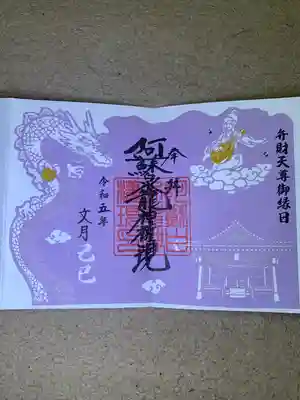 弁財天尊御縁日
奉拝
阿蘇水龍神権現
令和五年
文月
乙巳